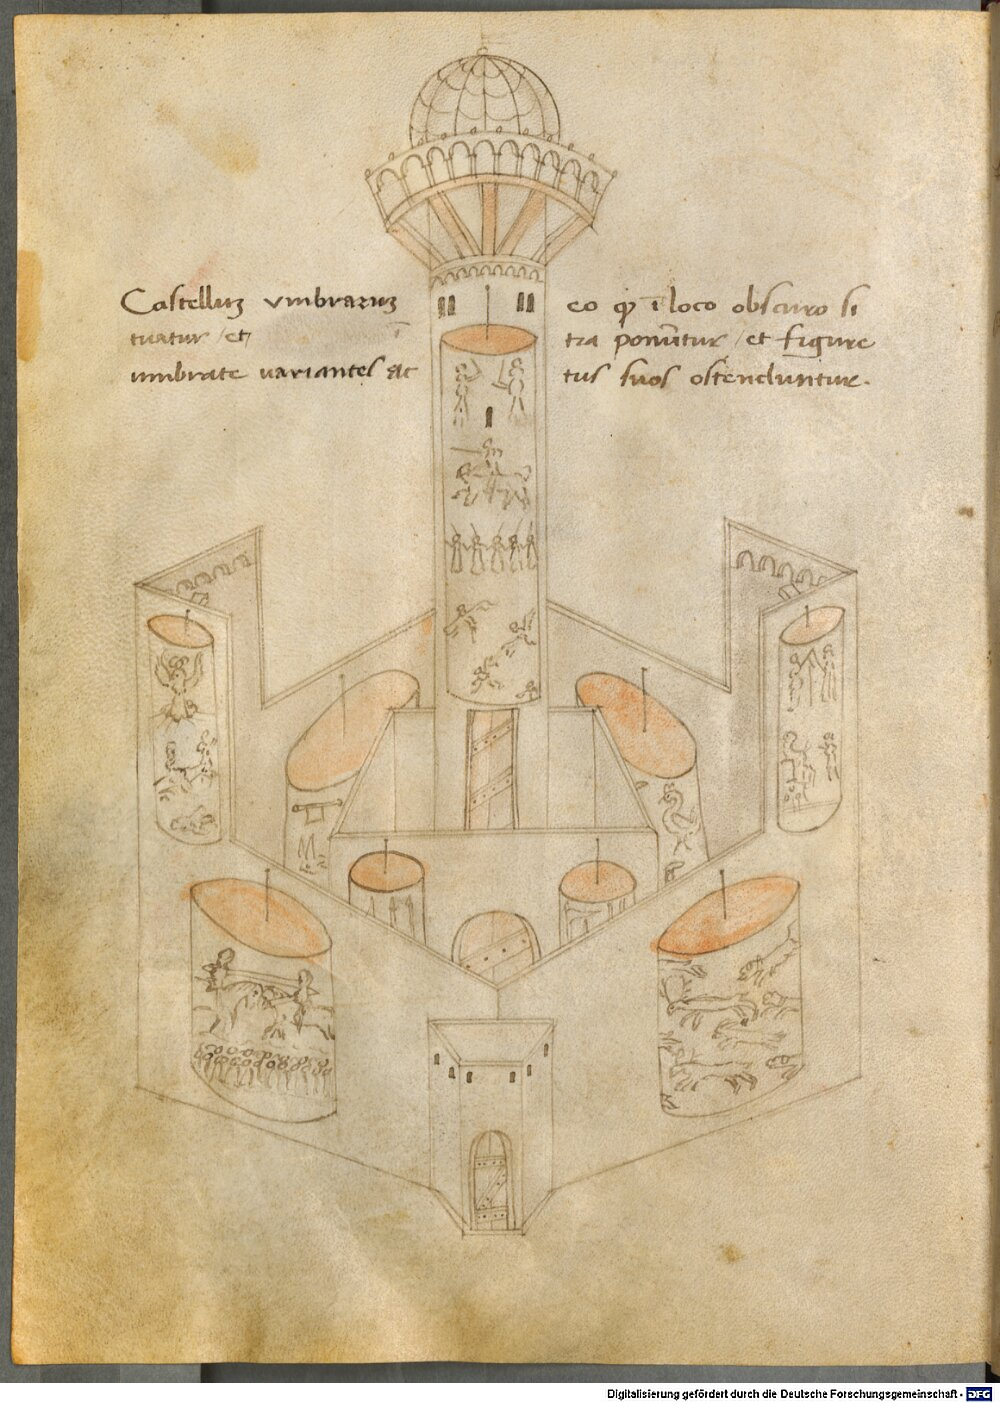 Castelluꝫ vmbraruꝫ eo ꝙ ī loco obscuro si
tuatur / et ī tra ponūtur / et figure
umbrate variantes ac tus suos ostenduntur.
Digitalisierung gefördert durch die Deutsche Forschungsgemeinschaft - DFG